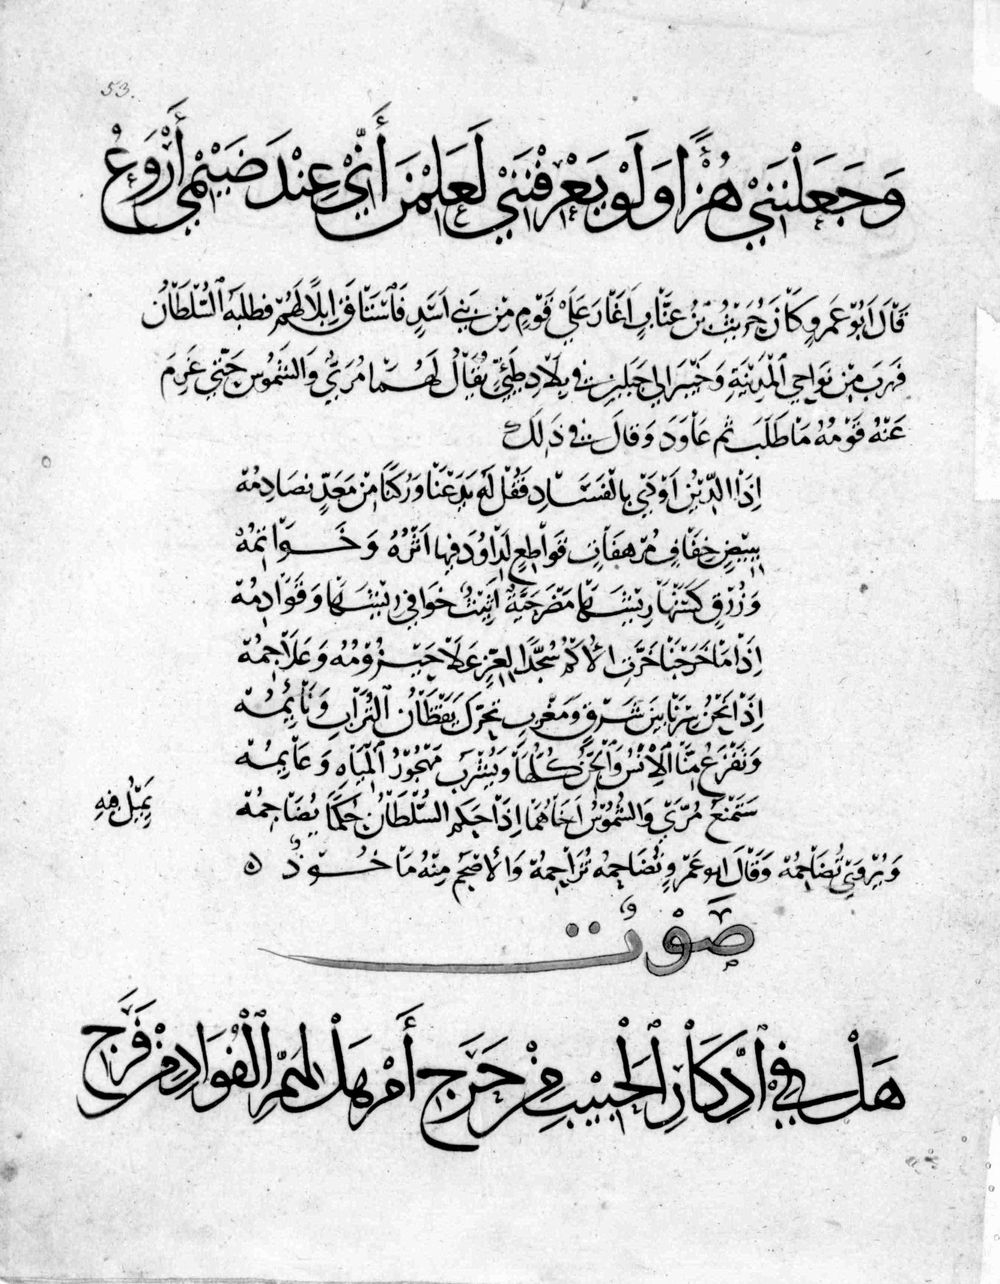 53.
وَجَعَلْنَنِيْ هُزُأً وَلَوْ يَعْرِفْنَنِيْ لَعَلِمْنَ أَنِّيْ عِنْدَ ضَيْمِيْ أَرْوَعُ
قَالَ اَبُوْ عَمرٍو كَانَ حُرَيْثُ بْنُ عنَّابٍ اَغَارَ عَلَىْ قَوْمٍ مِنْ بَنِي اَسَدٍ فَاسْتَاقَ اِبلًا لَهُمْ فطلبهُ السُّلطَانُ
فهربَ مِنْ نَوَاحِي اْلمَدِيْنَةِ وَخَيْبَرَ الى جَبَلَيْنِ فِي بِلَادِ طَيِّئٍ يُقَالُ لَهُمَا مُرّيٌّ وَالشمُوسُ حَتّى غَرِمَ
عَنْهُ قَوْمُهُ مَا طَلَبَ ثم عَاوَدَ وَقالَ فِي ذٰلكَ
اِذَا الدِّيْنُ اَوْدَىْ بِالْفَسَادِ فَقُلْ لَهُ يَدَعْنَا وَرُكْنًا مِنْ مَعَدٍّ نصَادِمُهْ
بِبِيْضٍ خِفَافٍ مُرْهفَاتٍ قوَاطِعٍ لِدَاوُدَ فِيْهَا اَثْرُهُ وَخَوَاتمُهْ
وَزُرْقٍ كَسَتْهَا رِيْشَهَا مَضْرَحيَّةٌ اَثِيْثٌ خَوَافِيْ رِيْشِهَا وَقَوَادِمُهْ
اِذَا مَا خَرَجْنَا خَرَّتِ الاُكْمُ سُجَّدًا لِعِزٍّ عَلَا حَيْزُوْمُهُ وَعَلَاجِمُهْ
اِذَا نَحْنُ سِرْنَا بَيْنَ شَرْقٍ وَمَغْرِبٍ تَحَرّكَ يَقْظَانُ اْلتُّرَابِ وَنَائِمُهْ
وَتَفْزَعُ مِنَّا اْلاِنْسُ وَاْلجِنُّ كُلُّهَا وَيُشْرَبُ مَهْجُوْرُ اْلمِيَاهِ وَعَايِمُهْ
سَتَمْنَعُ مُرّيْ وَالشمُوْسُ اَخَاهُمَا اِذَا حَكمَ السُّلطَانُ حُكمًا يُضَاجِمُهْ
يَمِيْلُ فِيْهِ
وَيُرْوَىْ تُضَاجِمُهْ وَقَالَ ابو عَمْرٍو تُضَاجِمُهُ تُزَاحِمُهْ وَالاَضجَمُ مِنْهُ مَاخُوْذٌ ه
صَوْتٌ
هَلْ فِي اْدِّكَارِ اْلحَبِيْبِ مِنْ حَرَجِ أَمْ هَلْ لِهَمِّ اْلفُوَادِ مِنْ فَرَجِ